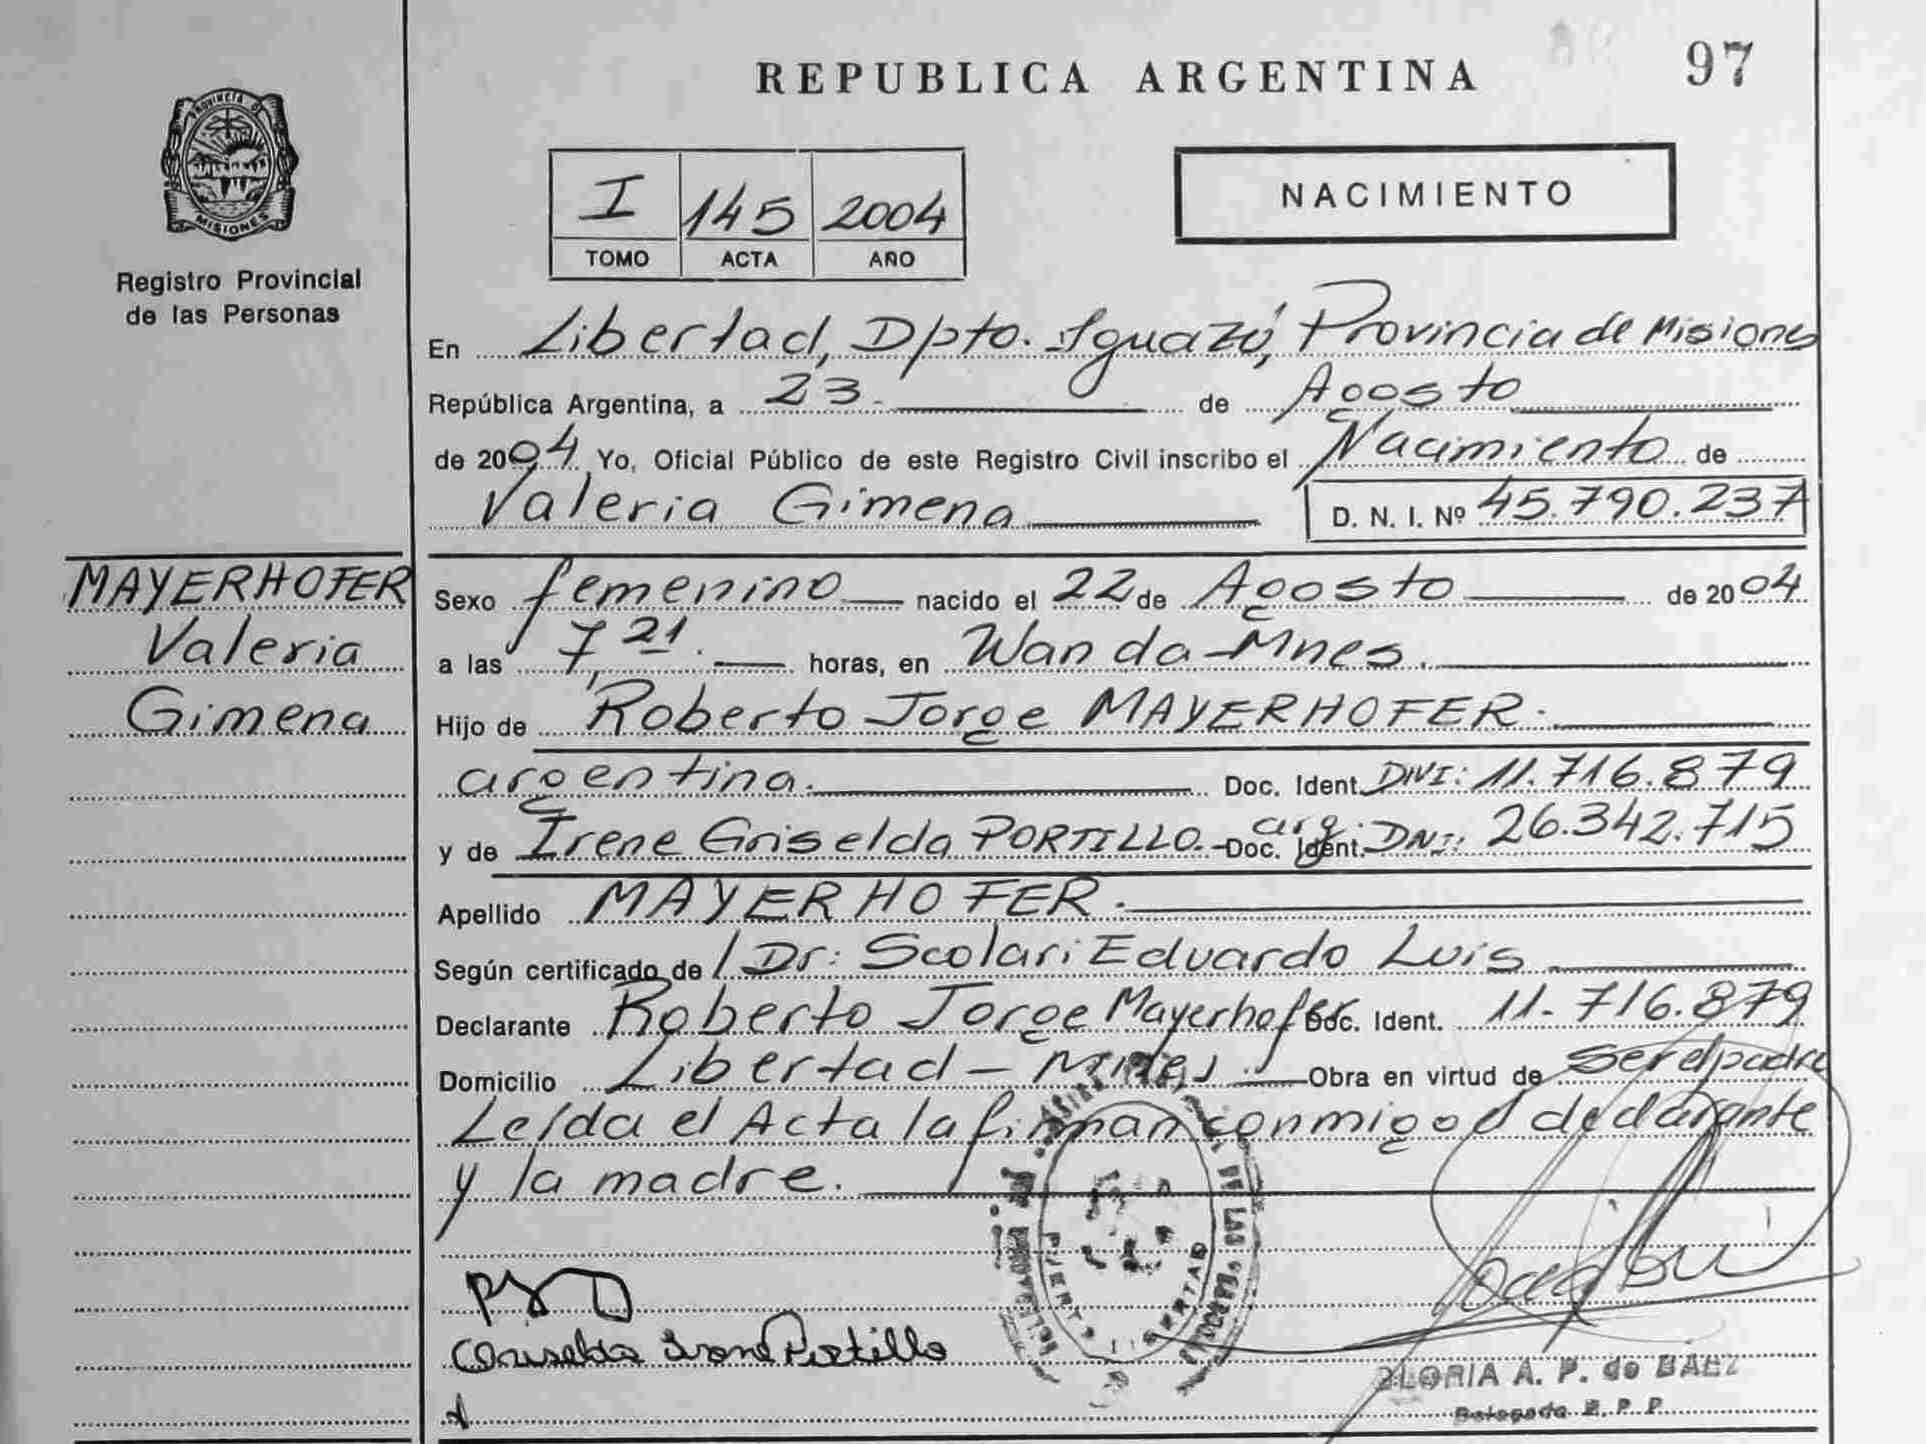 REPUBLICA ARGENTINA
97
PROVINCIA DE
MISIONES
Registro Provincial
de las Personas
I 145 2004
TOMO ACTA AÑO
NACIMIENTO
En Libertad, Dpto. Iguazú, Provincia de Misiones
República Argentina, a 23.- de Agosto
de 2004. Yo, Oficial Público de este Registro Civil inscribo el Nacimiento de
Valeria Gimena D. N. I. Nº 45.790.237
MAYERHOFER
Valeria
Gimena
Sexo femenino nacido el 22 de Agosto de 2004
a las 7,21. horas, en Wanda-Mnes.
Hijo de Roberto Jorge MAYERHOFER.
argentina. Doc. Ident. DNI: 11.716.879
y de Irene Griselda PORTILLO.- arg. Doc. Ident. DNI: 26.342.715
Apellido MAYERHOFER.
Según certificado de Dr: Scolari Eduardo Luis
Declarante Roberto Jorge Mayerhofer Doc. Ident. 11.716.879
Domicilio Libertad - Mnes. Obra en virtud de ser el padre
Leída el Acta la firman conmigo el declarante
y la madre.
Griselda Irene Portillo
LIBERTAD
GLORIA A. P. de BAEZ
Delegada R. P. P.